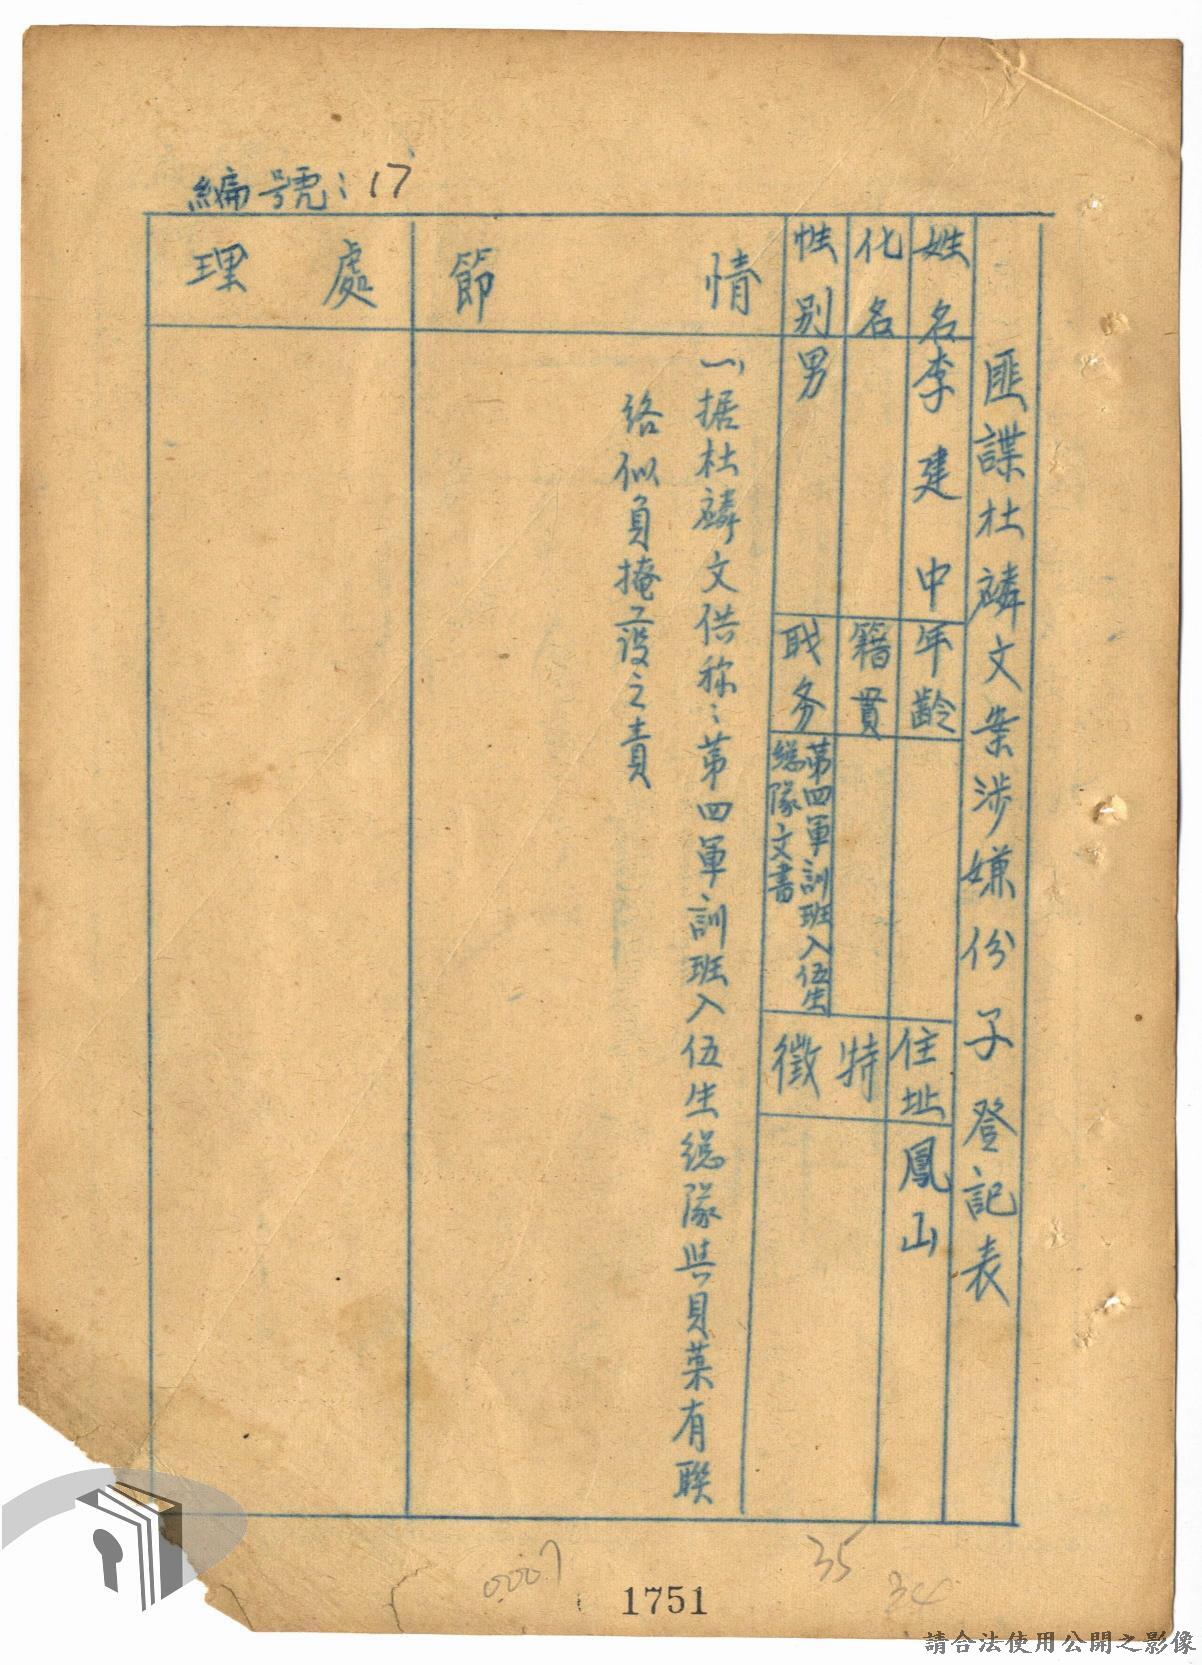 編號：17
匪諜杜麟文案涉嫌份子登記表
姓名
李建中
年齡
住址
鳳山
化名
籍貫
特徵
性別
男
职务
第四軍訓班入伍生
總隊文書
情節
一、据杜麟文供称：第四軍訓班入伍生總隊與貝菓有聯
络似負掩设之責
處理
0007
35
34
1751
請合法使用公開之影像